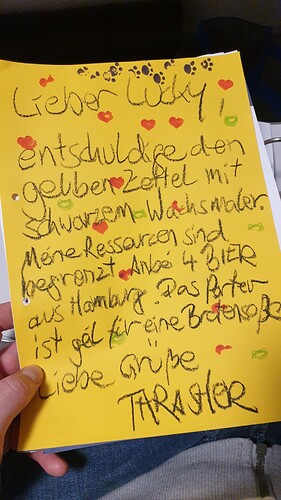 Lieber Lucky,
entschuldige den
gelben Zettel mit
schwarzem Wachsmaler.
Meine Ressourcen sind
begrenzt. Anbei 4 BIER
aus Hamburg. Das Porter
ist geil für eine Bratensoße
Liebe Grüße
THRASHER